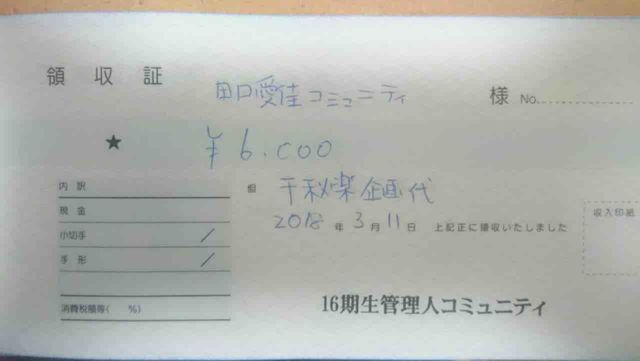 領収証
田口愛佳コミュニティ 様 No.
★ ¥6.000
内訳
但 千秋楽企画代
現金
2018年3月11日 上記正に領収いたしました
収入印紙
小切手 /
手形 /
消費税額等( %)
16期生管理人コミュニティ